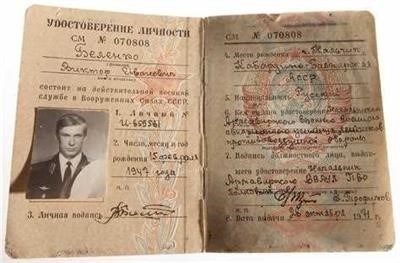 УДОСТОВЕРЕНИЕ ЛИЧНОСТИ
СМ № 070808
Беленко
Виктор Иванович
состоит на действительной военной
службе в Вооруженных Силах СССР.
1. Личный №
2. Число, месяц и год
рождения 15 февраля
1947 года
3. Личная подпись
СМ № 070808
4. Место рождения г. Нальчик
Кабардино-Балкарская
АССР
5. Национальность Русский
6. Кем выдано удостоверение Начальником
Армавирского военного высшего
авиационного училища лётчиков
противовоздушной обороны
7. Подпись должностного лица, выдав-
удостоверение Начальник
Армавирского ПВО
8. Дата выдачи 26 октября 1971 г.